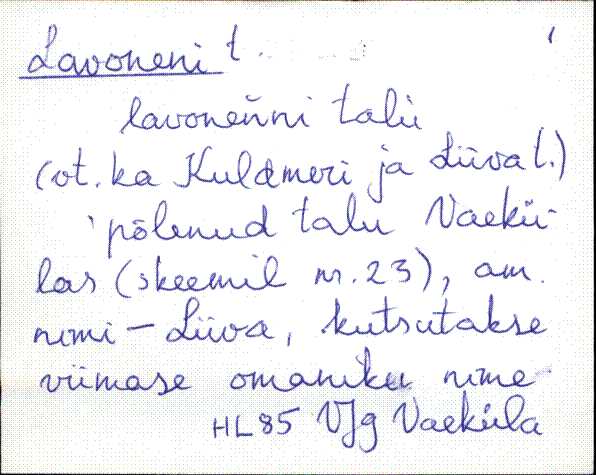 Lavoneni t.
lavoneńni talu
(vt. ka Kuldmeri ja Liiva t.)
'põlenud talu Vaekü-
las (skeemil nr. 23), am.
nimi – Liiva, kutsutakse
viimase omaniku nime
HL85 VJg Vaeküla